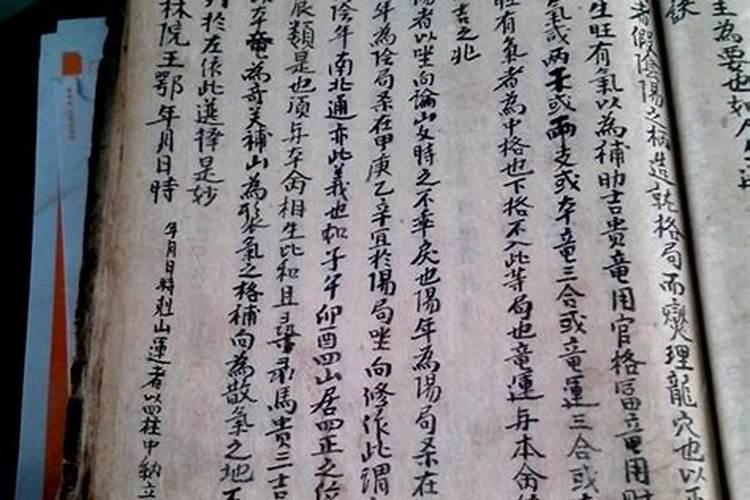 主為要也如人生
訣
者假陰陽之柄造就格局而燮理龍穴也以
生旺有氣以為補助吉貴竜用官格冨竜用財
氣或两干或两支或本竜三合或竜運三合或
旺有氣者為中格也下格不入此等局也竜運与本侖
吉之兆
陽者以坐向論山女時之不乖戾也陽年為陽局系在
年為陰局系在甲庚乙辛宜於陽局坐向修作此謂
陰年南北通亦此義也如子午卯酉四山居四正之位
辰類是也須与本侖相生比和且尋录馬貴三吉
本竜為奇关補山為聚氣之格補向為散氣之地
於左依此選择是妙
林院王鄂年月日時
年月日時尅山運者以四柱中納